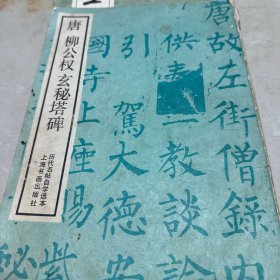 唐 柳公权 玄秘塔碑
历代名帖自学选本
上海书画出版社
唐故左街僧録内
供奉三教談論
引駕大德安
國寺上座賜
紫
秘